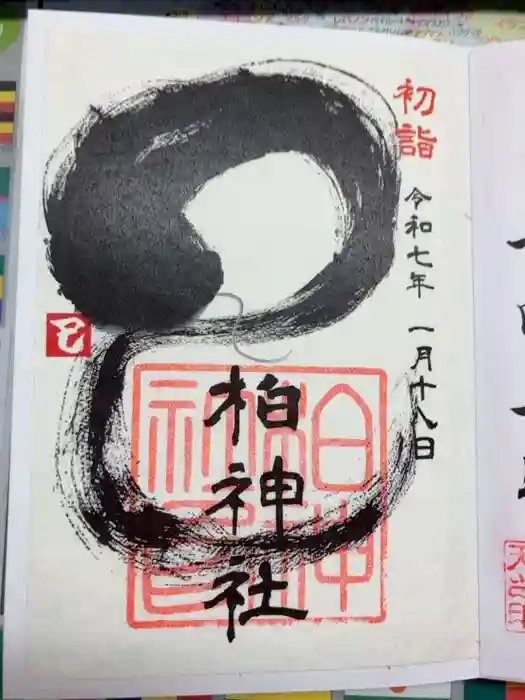 初詣
令和七年 一月十八日
巳
柏神社